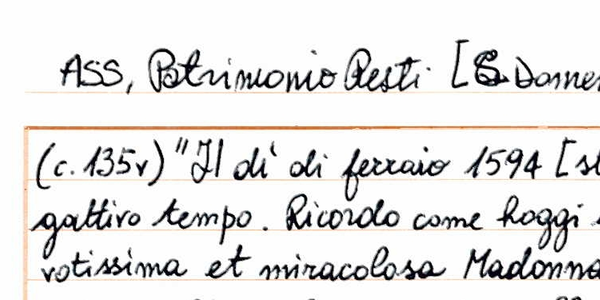 ASS, Patrimonio Resti [S. Domen
(c. 135v) "Il dì di ferraio 1594 [st
gattivo tempo. Ricordo come hoggi
votissima et miracolosa Madonna